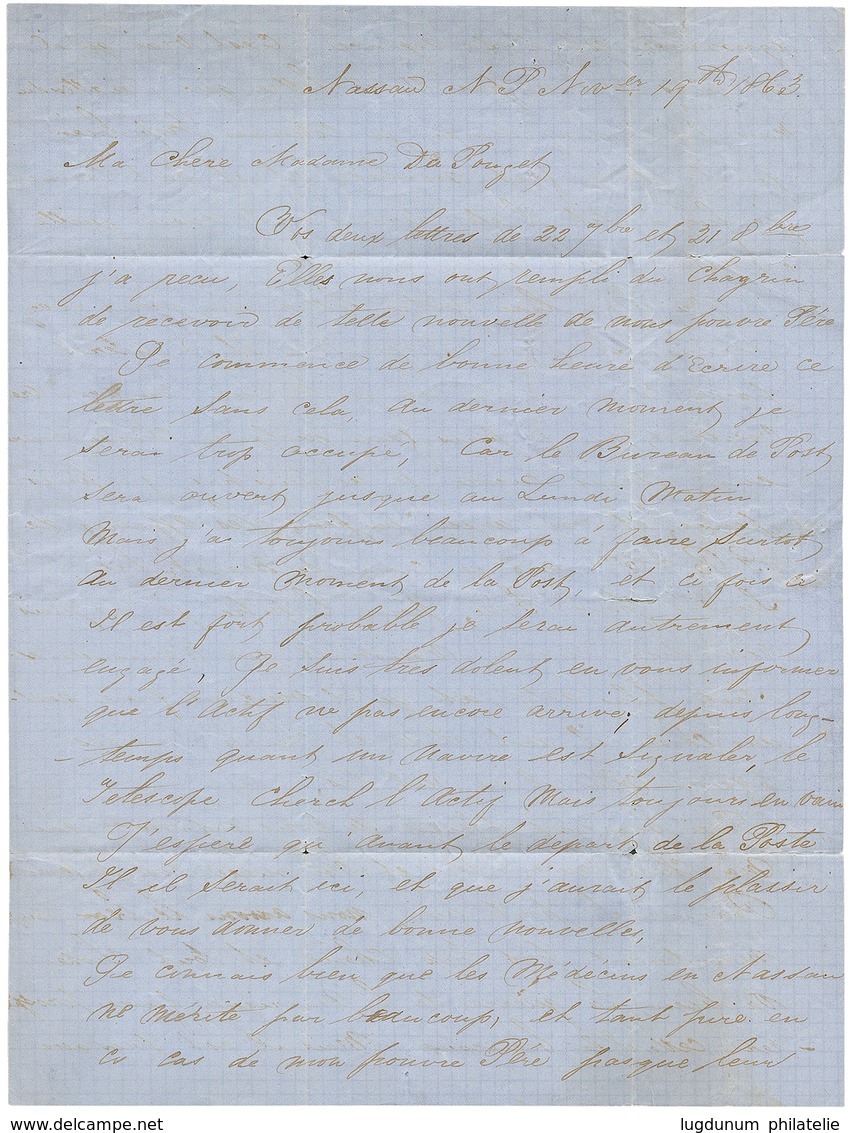 Nassau N P Nov^er 19^th 1863.
Ma Chere Madame Du Pouget
Vos deux lettres de 22 7bre et 21 8bres
j'a recu, Elles nous ont rempli du Chagrin
de recevoir de telle nouvelle de nous pouvre Pére
Je commence de bonne heure d'Ecrire ce
lettre sans cela, Au dernier moment je
serai trop occupé, Car le Bureau de Post
sera ouvert jusque au Lundi Matin
Mais j'ai toujours beaucoup á faire surtot
Au dernier moment de la Post, et ci fois ci
Il est fort probable je serai autrement
engagé, Je suis tres dolent en vous informer
que l'Actif ne pas encore arrivé; depuis long-
-temps quant un navire est signaler, le
Telescope cherch l'Actif Mais toujours en vain
J'espére qu'avant le depart de la Poste
Il il serait ici, et que j'aurait le plassir
de vous donner de bonne nouvelles,
Je connais bien que les Médécins en Nassau
ne mérite par beaucoup, et tant pire en
ci cas de mon pouvre Pére pasque leur
www.delcampe.net
lugdunum philatelie